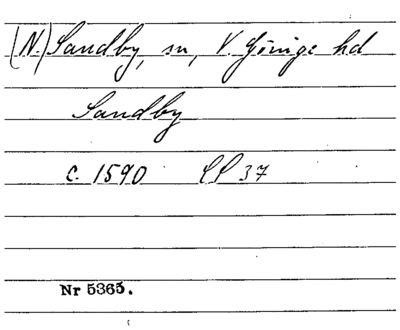 (N.) Sandby, sn, V. Göinge hd
Sandby
c. 1590 LP 37
Nr 5365.